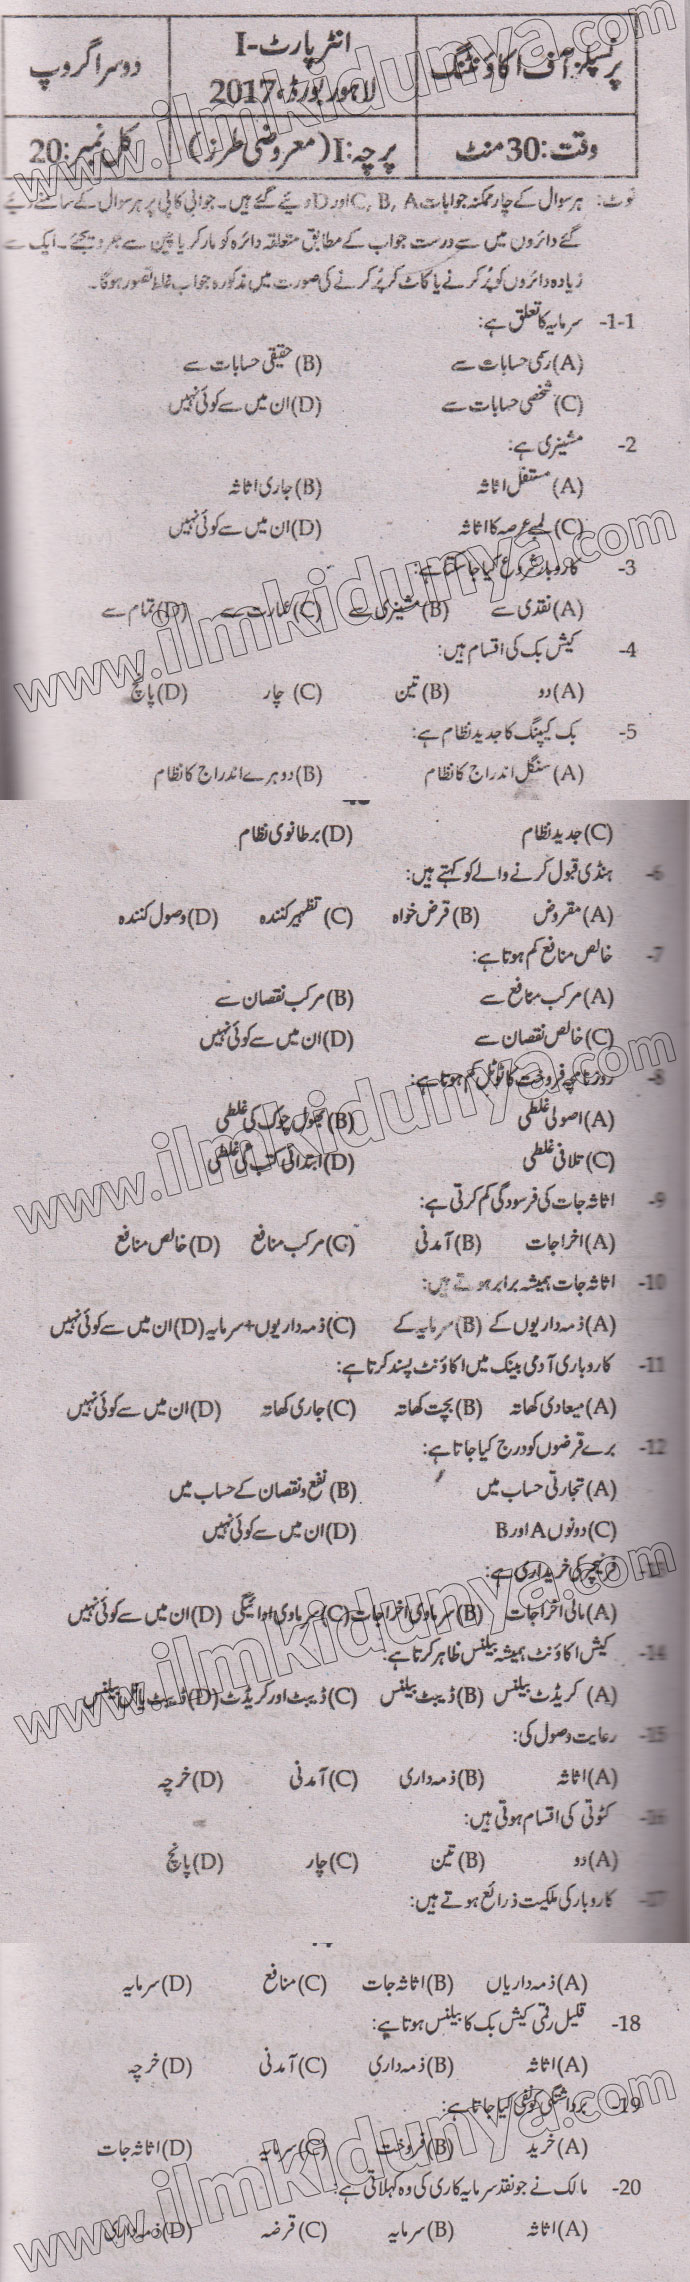 پرنسپلز آف اکاؤنٹنگ
انٹر پارٹ-I
لاہور بورڈ، 2017
دوسرا گروپ
وقت: 30 منٹ
پرچہ: I (معروضی طرز)
کل نمبر: 20
نوٹ: ہر سوال کے چار ممکنہ جوابات C, B, A اور D دیئے گئے ہیں۔ جوابی کاپی پر ہر سوال کے سامنے دیئے
گئے دائروں میں سے درست جواب کے مطابق متعلقہ دائرہ کو مارکر یا پین سے بھر دیجئے۔ ایک سے
زیادہ دائروں کو پُر کرنے یا کاٹ کر پُر کرنے کی صورت میں مذکورہ جواب غلط تصور ہوگا۔
1-1- سرمایہ کا تعلق ہے:
(A) رسمی حسابات سے (B) حقیقی حسابات سے
(C) شخصی حسابات سے (D) ان میں سے کوئی نہیں
2- مشینری ہے:
(A) مستقل اثاثہ (B) جاری اثاثہ
(C) لمبے عرصہ کا اثاثہ (D) ان میں سے کوئی نہیں
3- کاروبار شروع کیا جا سکتا ہے:
(A) نقدی سے (B) مشینری سے (C) عمارت سے (D) تمام سے
4- کیش بک کی اقسام ہیں:
(A) دو (B) تین (C) چار (D) پانچ
5- بک کیپنگ کا جدید نظام ہے:
(A) سنگل اندراج کا نظام (B) دوہرے اندراج کا نظام
(C) جدید نظام (D) برطانوی نظام
6- ہنڈی قبول کرنے والے کو کہتے ہیں:
(A) مقروض (B) قرض خواہ (C) تظہیر کنندہ (D) وصول کنندہ
7- خالص منافع کم ہوتا ہے:
(A) مرکب منافع سے (B) مرکب نقصان سے
(C) خالص نقصان سے (D) ان میں سے کوئی نہیں
8- روزنامچہ فروخت کا ٹوٹل کم ہوتا ہے:
(A) اصولی غلطی (B) بھول چوک کی غلطی
(C) تلافی غلطی (D) ابتدائی کتب کی غلطی
9- اثاثہ جات کی فرسودگی کم کرتی ہے:
(A) اخراجات (B) آمدنی (C) مرکب منافع (D) خالص منافع
10- اثاثہ جات ہمیشہ برابر ہوتے ہیں:
(A) ذمہ داریوں کے (B) سرمایہ کے (C) ذمہ داریوں+سرمایہ (D) ان میں سے کوئی نہیں
11- کاروباری آدمی بینک میں اکاؤنٹ پسند کرتا ہے:
(A) میعادی کھاتہ (B) بچت کھاتہ (C) جاری کھاتہ (D) ان میں سے کوئی نہیں
12- برے قرضوں کو درج کیا جاتا ہے:
(A) تجارتی حساب میں (B) نفع و نقصان کے حساب میں
(C) دونوں A اور B (D) ان میں سے کوئی نہیں
13- فرنیچر کی خریداری ہے:
(A) مالی اخراجات (B) سرماوی اخراجات (C) سرماوی ادائیگی (D) ان میں سے کوئی نہیں
14- کیش اکاؤنٹ ہمیشہ بیلنس ظاہر کرتا ہے:
(A) کریڈٹ بیلنس (B) ڈیبٹ بیلنس (C) ڈیبٹ اور کریڈٹ (D) ڈیبٹ بیلنس
15- رعایت وصول کی:
(A) اثاثہ (B) ذمہ داری (C) آمدنی (D) خرچہ
16- کٹوتی کی اقسام ہوتی ہیں:
(A) دو (B) تین (C) چار (D) پانچ
17- کاروبار کی ملکیت ذرائع ہوتے ہیں:
(A) ذمہ داریاں (B) اثاثہ جات (C) منافع (D) سرمایہ
18- قلیل رقمی کیش بک کا بیلنس ہوتا ہے:
(A) اثاثہ (B) ذمہ داری (C) آمدنی (D) خرچہ
19- برداشتگی کو نفی کیا جاتا ہے:
(A) خرید (B) فروخت (C) سرمایہ (D) اثاثہ جات
20- مالک نے جو نقد سرمایہ کاری کی وہ کہلاتی ہے:
(A) اثاثہ (B) سرمایہ (C) قرضہ (D) ذمہ داری
www.ilmkidunya.com
www.ilmkidunya.com
www.ilmkidunya.com
www.ilmkidunya.com
www.ilmkidunya.com